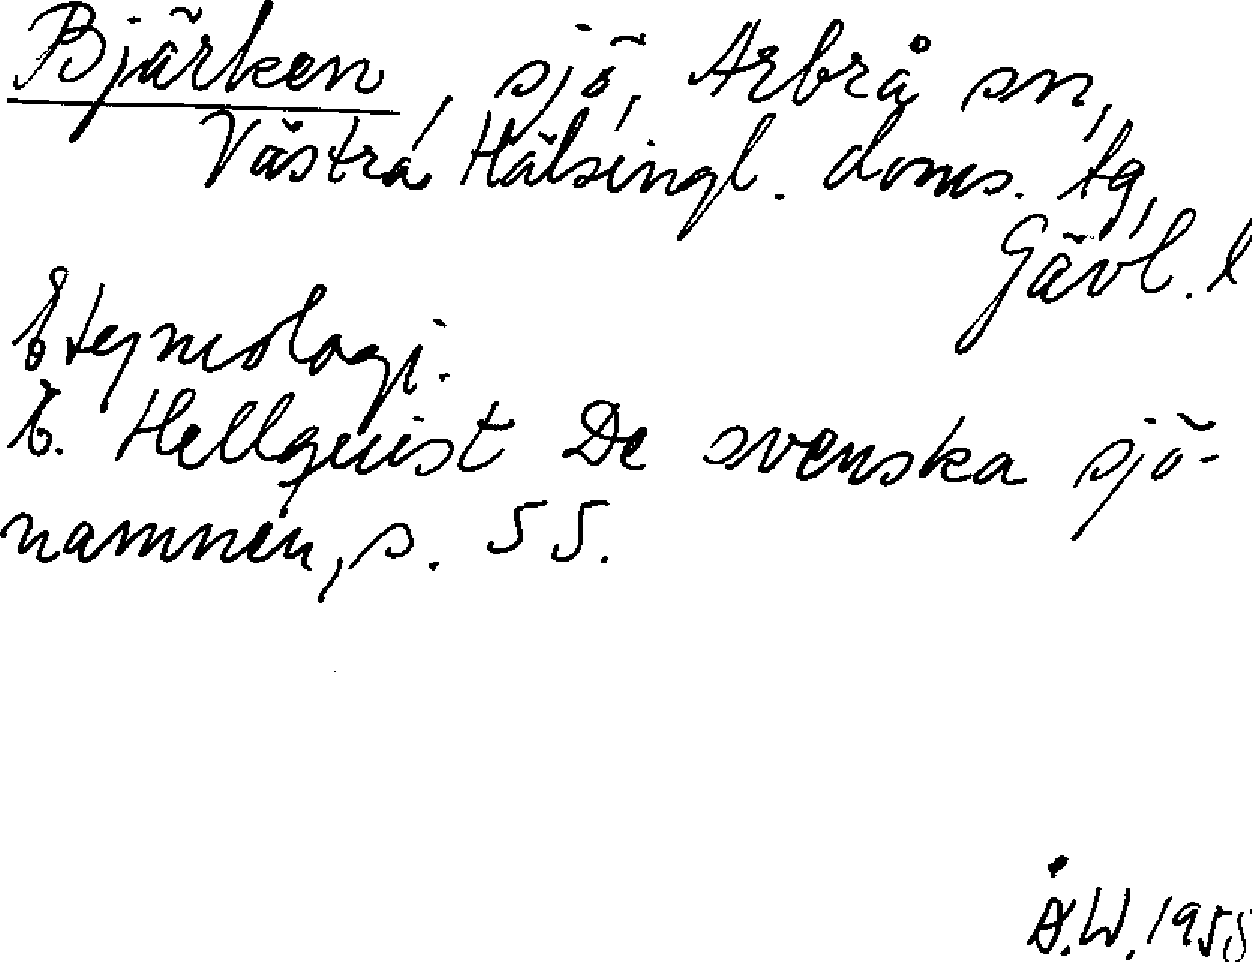 Bjärken, sjö, Arbrå sn,
Västra Hälsingl. doms. tg,
Gävl. l
Etymologi.
E. Hellquist De svenska sjö-
namnen, s. 55.
Å.W. 1955